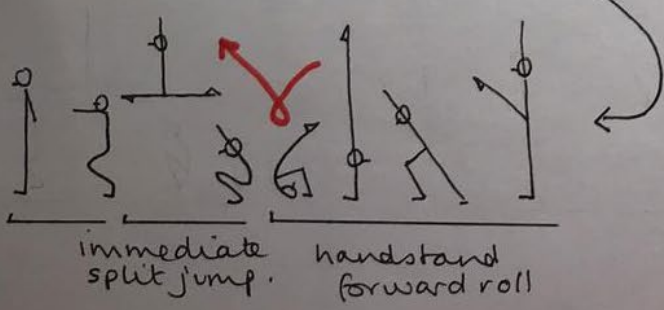 immediate
split jump.
handstand
forward roll